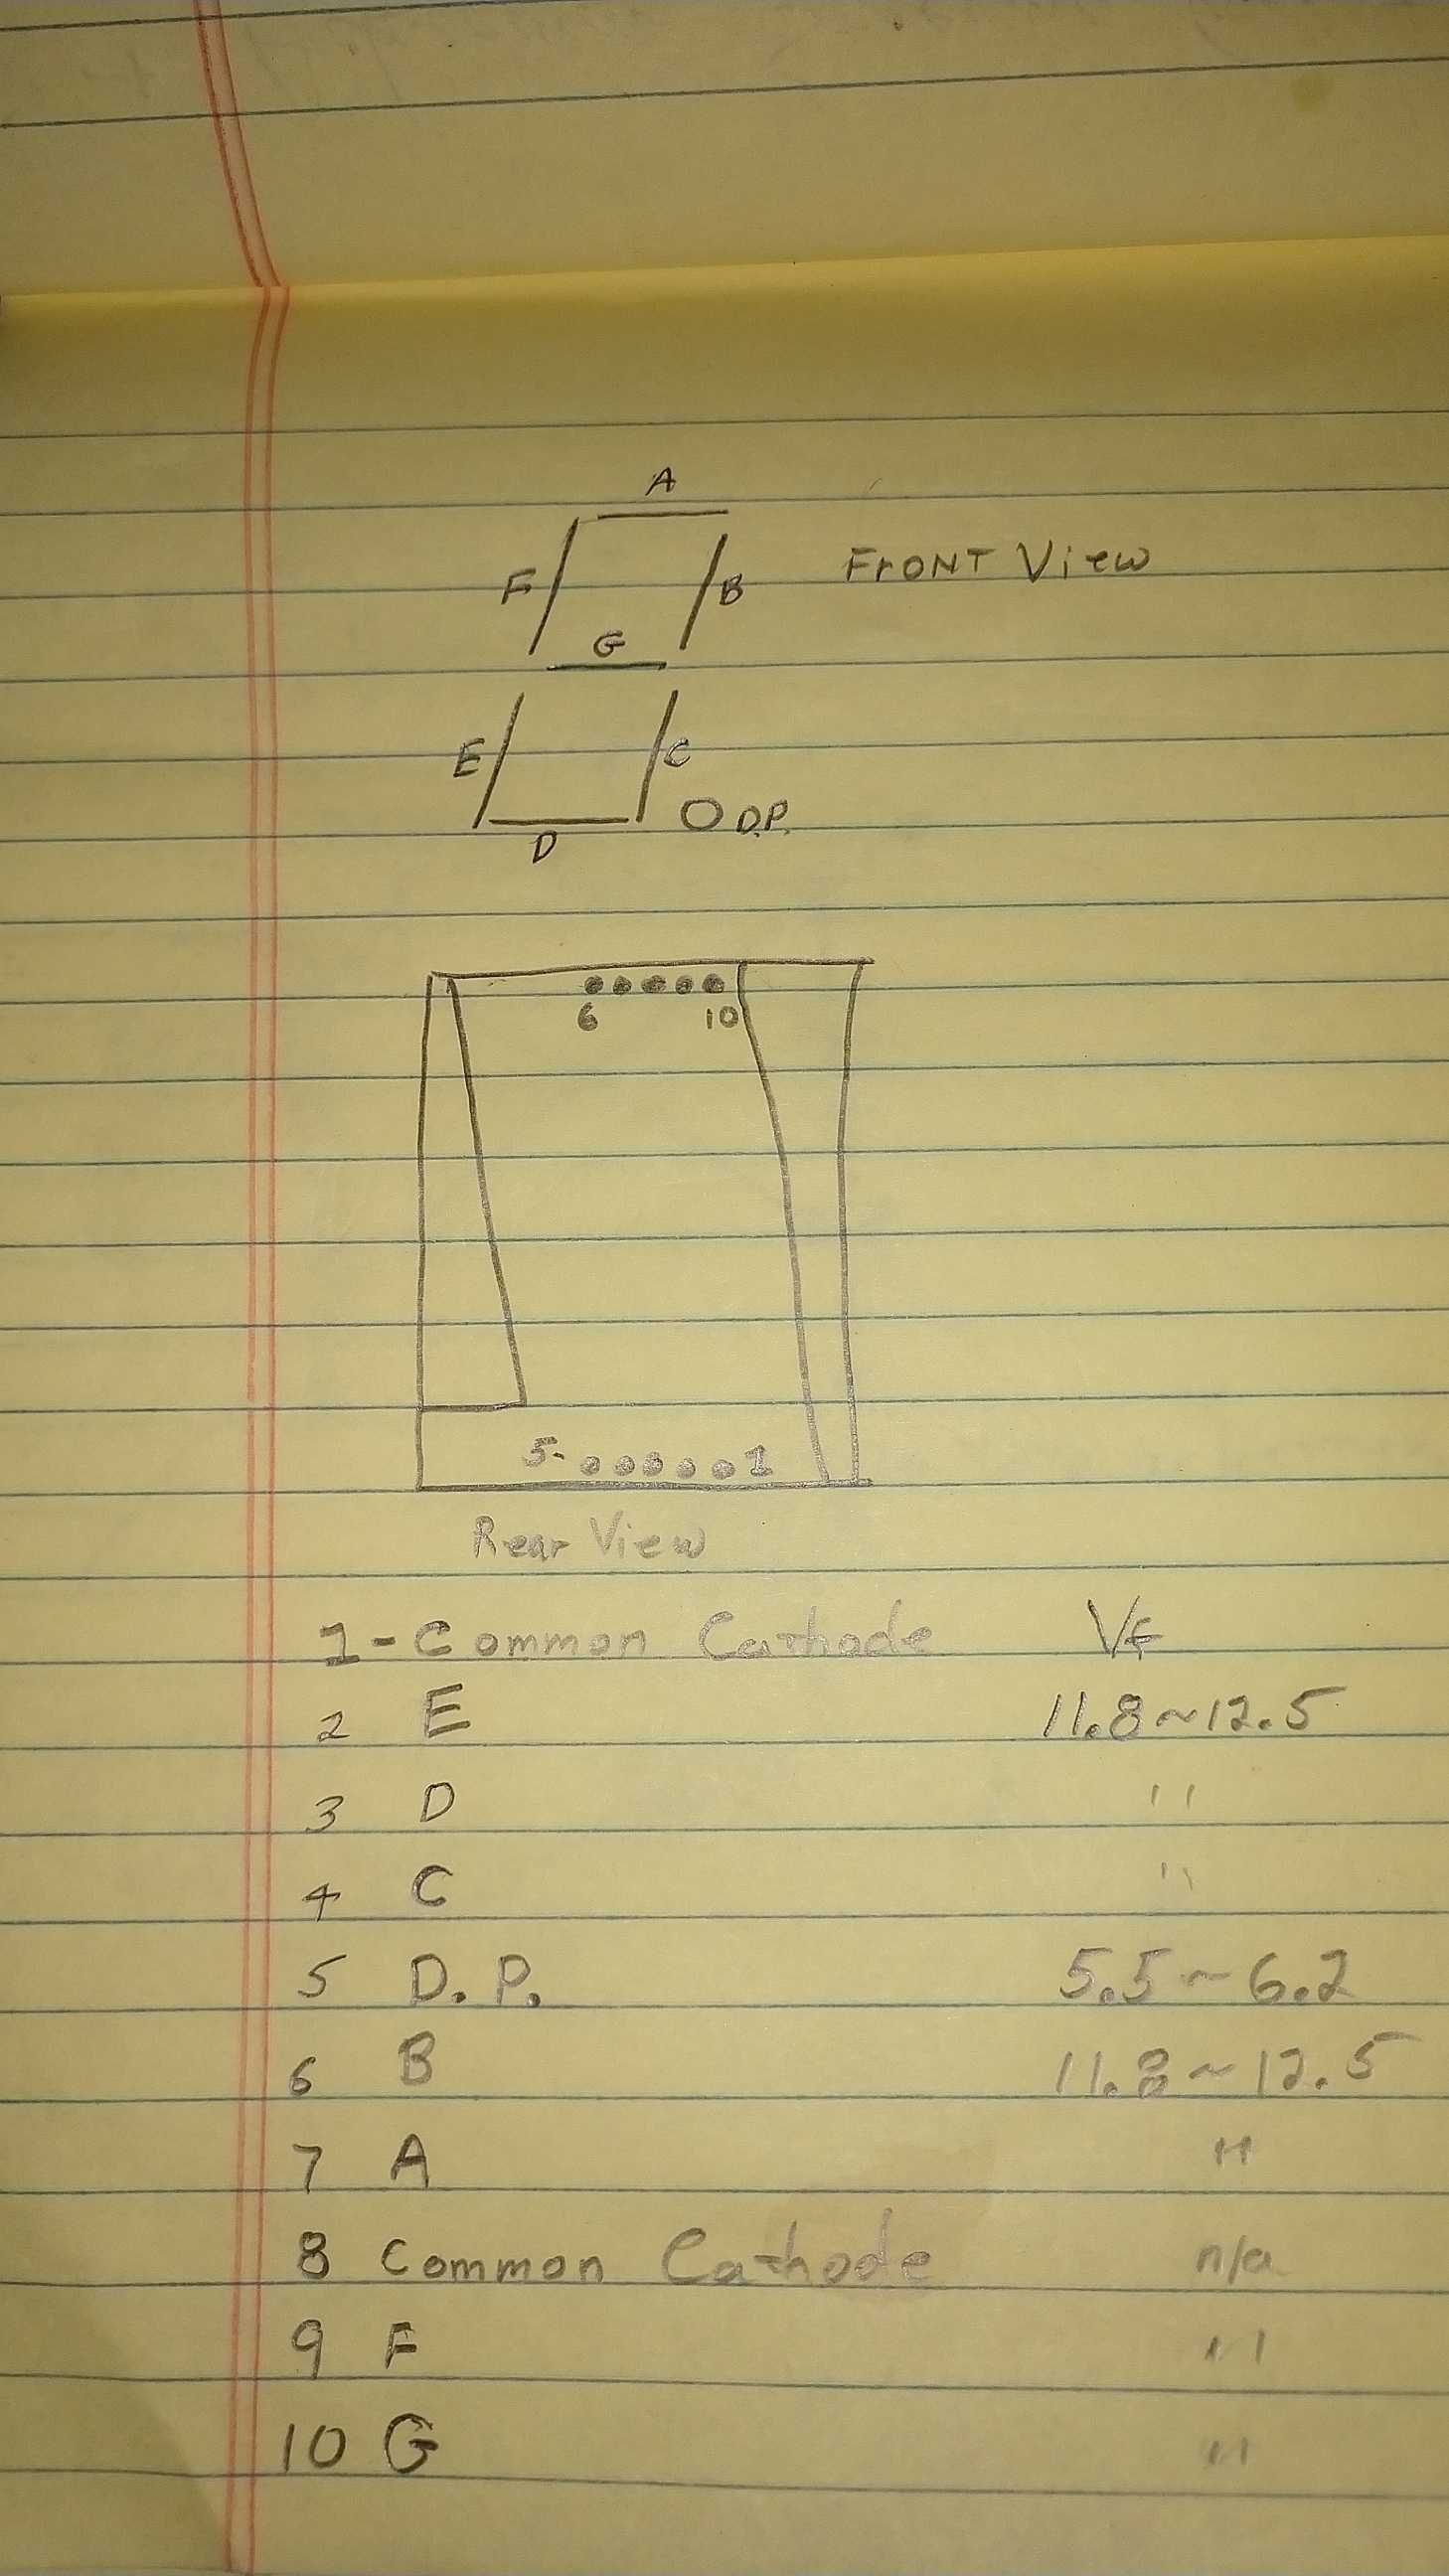 A
F B FRONT View
G
E C
D.P.
D
6 10
5- 1
Rear View
1-Common Cathode Vf
2 E 11.8~12.5
3 D "
4 C "
5 D.P. 5.5~6.2
6 B 11.8~12.5
7 A "
8 Common Cathode n/a
9 F "
10 G "